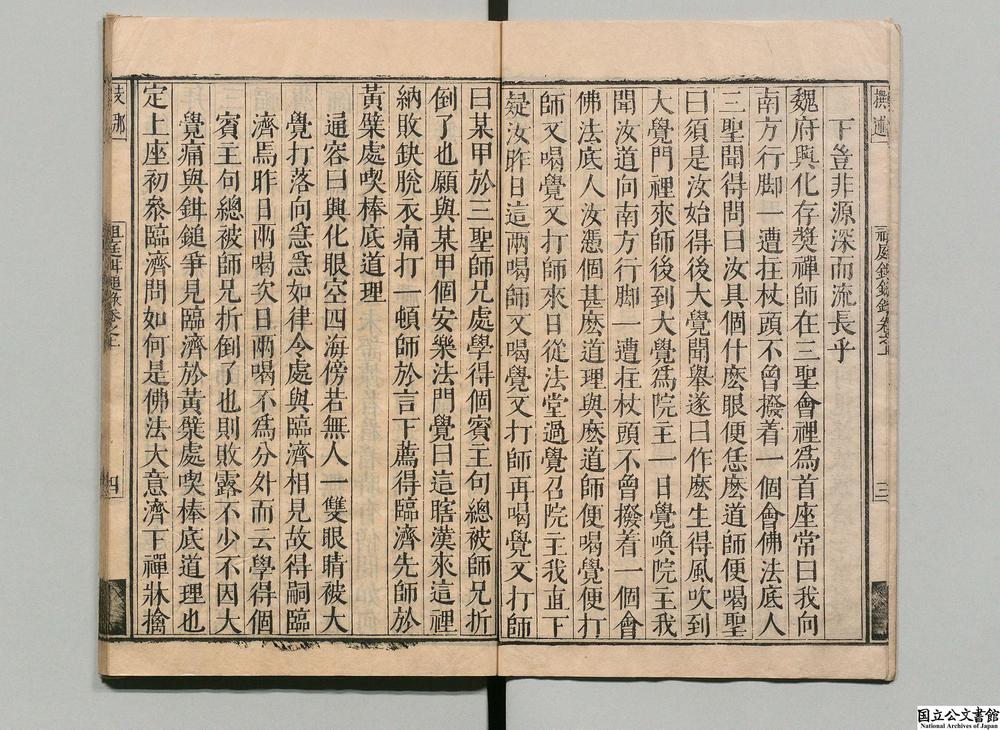 下豈非源深而流長乎
魏府與化存奬禪師在三聖會裡爲首座常曰我向
南方行脚一遭拄杖頭不曾撥着一個會佛法底人
三聖聞得問曰汝具個什麽眼便恁麽道師便喝聖
曰須是汝始得後大覺聞舉遂曰作麽生得風吹到
大覺門裡來師後到大覺爲院主一日覺喚院主我
聞汝道向南方行脚一遭拄杖頭不曾撥着一個會
佛法底人汝憑個甚麽道理與麽道師便喝覺便打
師又喝覺又打師來日從法堂過覺召院主我直下
疑汝昨日這兩喝師又喝覺又打師再喝覺又打師
曰某甲於三聖師兄處學得個賓主句總被師兄折
倒了也願與某甲個安樂法門覺曰這瞎漢來這裡
納敗缺脫衣痛打一頓師於言下薦得臨濟先師於
黃檗處喫棒底道理
通容曰興化眼空四海傍若無人一雙眼睛被大
覺打落向急急如律令處與臨濟相見故得嗣臨
濟焉昨日兩喝次日兩喝不爲分外而云學得個
賓主句總被師兄折倒了也則敗露不少不因大
覺痛與鉗鎚爭見臨濟於黃檗處喫棒底道理也
定上座初叅臨濟問如何是佛法大意濟下禪牀擒
祖庭鉗鎚錄卷之上
三
祖庭鉗鎚錄卷之上
四
国立公文書館
National Archives of Japan